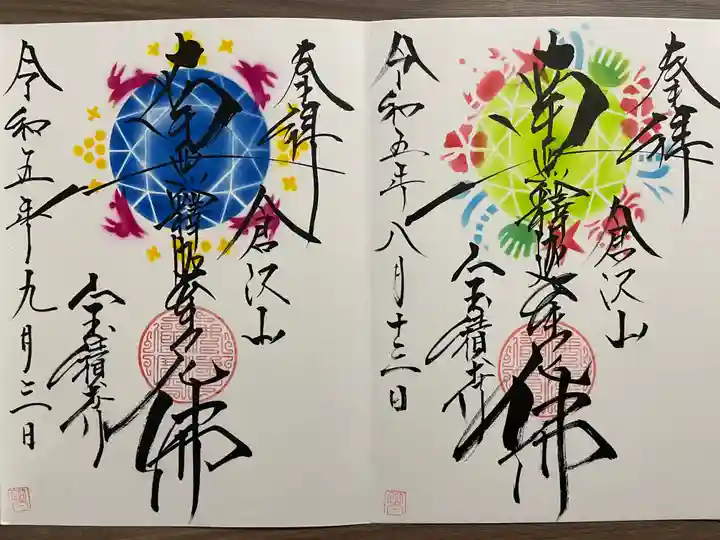 奉拝
倉沢山
南無釋迦牟尼佛
宝積寺
令和五年九月三日
奉拝
倉沢山
南無釋迦牟尼佛
宝積寺
令和五年八月十三日